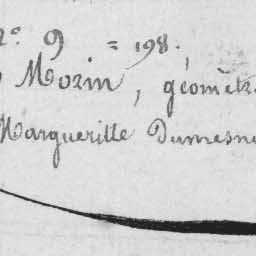 2º 9 = 198.
Morin, géomètr
Marguerille Dumesn